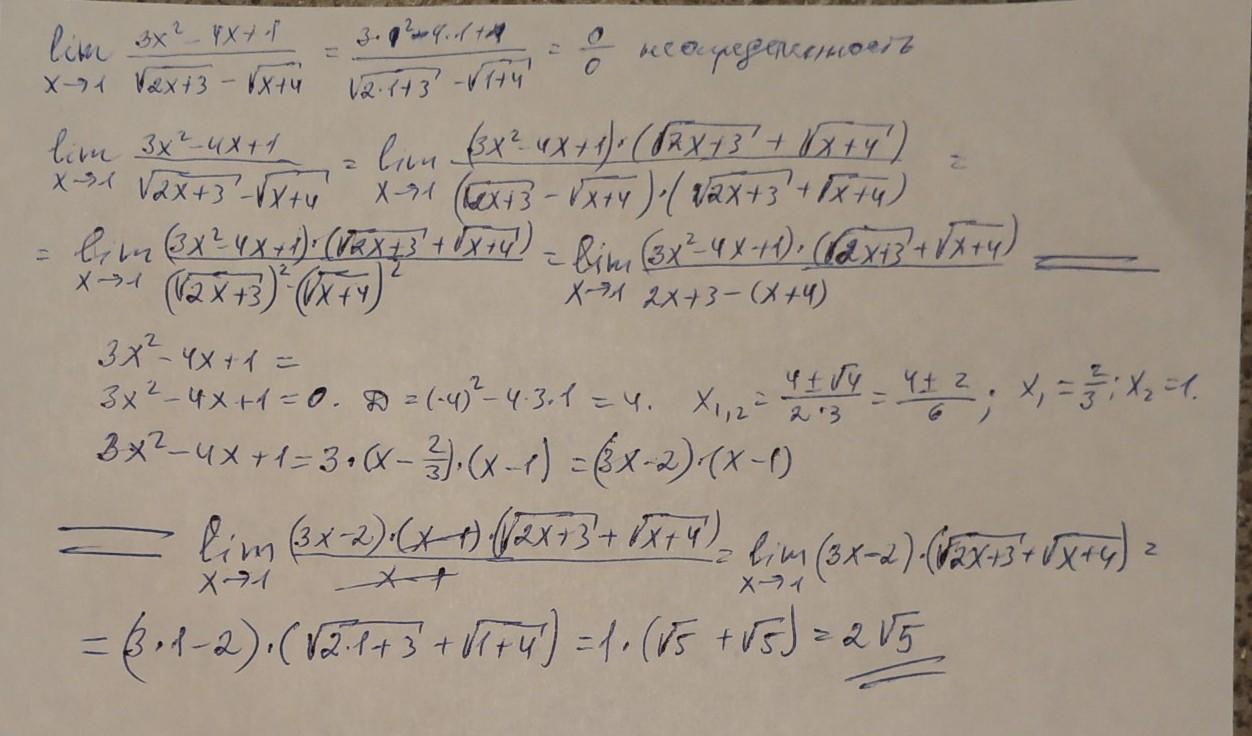 lim x→1 (3x² - 4x + 1)/(√(2x+3) - √(x+4)) = (3·1² - 4·1 + 1)/(√(2·1+3) - √(1+4)) = 0/0 неопределенность
lim x→1 (3x² - 4x + 1)/(√(2x+3) - √(x+4)) = lim x→1 ((3x² - 4x + 1)·(√(2x+3) + √(x+4)))/((√(2x+3) - √(x+4))·(√(2x+3) + √(x+4))) =
= lim x→1 ((3x² - 4x + 1)·(√(2x+3) + √(x+4)))/((√(2x+3))² - (√(x+4))²) = lim x→1 ((3x² - 4x + 1)·(√(2x+3) + √(x+4)))/(2x+3 - (x+4)) =
3x² - 4x + 1 =
3x² - 4x + 1 = 0. D = (-4)² - 4·3·1 = 4. x₁,₂ = (4 ± √4)/(2·3) = (4 ± 2)/6; x₁ = 2/3; x₂ = 1.
3x² - 4x + 1 = 3·(x - 2/3)·(x - 1) = (3x - 2)·(x - 1)
= lim x→1 ((3x - 2)·(x - 1)·(√(2x+3) + √(x+4)))/(x - 1) = lim x→1 (3x - 2)·(√(2x+3) + √(x+4)) =
= (3·1 - 2)·(√(2·1+3) + √(1+4)) = 1·(√5 + √5) = 2√5